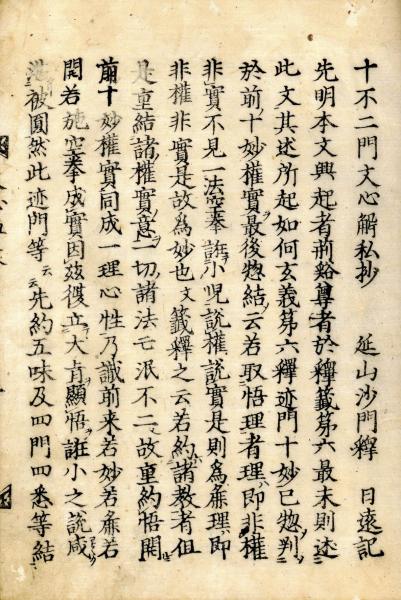 十不二門文心解私抄　延山沙門釋　日遠記
先明本文興起者荊谿尊者於釋籤第六最末則述
此文其述所起如何玄義第六釋迹門十妙已惣判
於前十妙權實最後惣結云若取悟理者理即非權
非實不見一法空拳誑小兒說權說實是則爲麁理即
非權非實是故爲妙也文籤釋之云若約諸教者但
是重結諸權實意一切諸法亡泯不二故重約悟開
前十妙權實同成一理心性乃識前来若妙若麁若
開若施空拳成實因茲復立大肯顯悟誑小之說咸
被圓然此迹門等云云先約五味及四門四悉等結